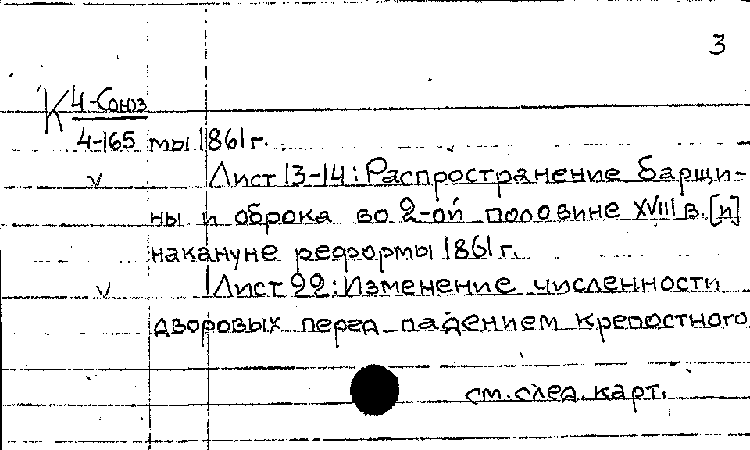 3
К 4-Союз
4-165 мы 1861 г.
v Лист 13-14: Распространение барщи-
ны и оброка во 2-ой половине XVIII в. [и]
накануне реформы 1861 г.
v Лист 22: Изменение численности
дворовых перед падением крепостного
см. след. карт.